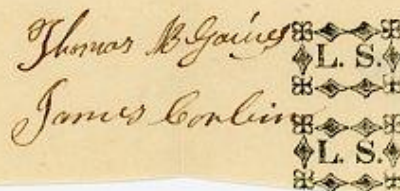 Thomas B Gaines L. S.
James Corbin L. S.